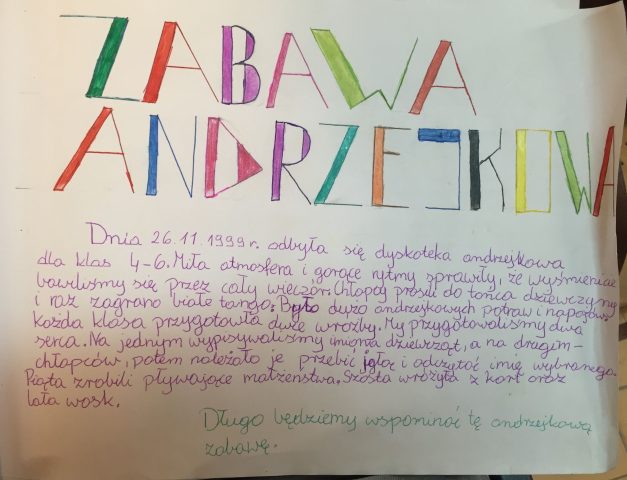 ZABAWA
ANDRZEJKOWA
Dnia 26.11.1999r. odbyła się dyskoteka andrzejkowa
dla klas 4-6. Miła atmosfera i gorące rytmy sprawiły, że wyśmienicie
bawiliśmy się przez cały wieczór. Chłopcy prosili do tańca dziewczyny
i raz zagrano białe tango. Było dużo andrzejkowych potraw i napojów.
każda klasa przygotowała duże wróżby. My przygotowaliśmy dwa
serca. Na jednym wypisywaliśmy imiona dziewcząt, a na drugim-
chłopców, potem należało je przebić igłą i odczytać imię wybranego.
Piąta zrobili pływające małżeństwa. Szósta wróżyła z kart oraz
lała wosk.
Długo będziemy wspominać tę andrzejkową
zabawę.